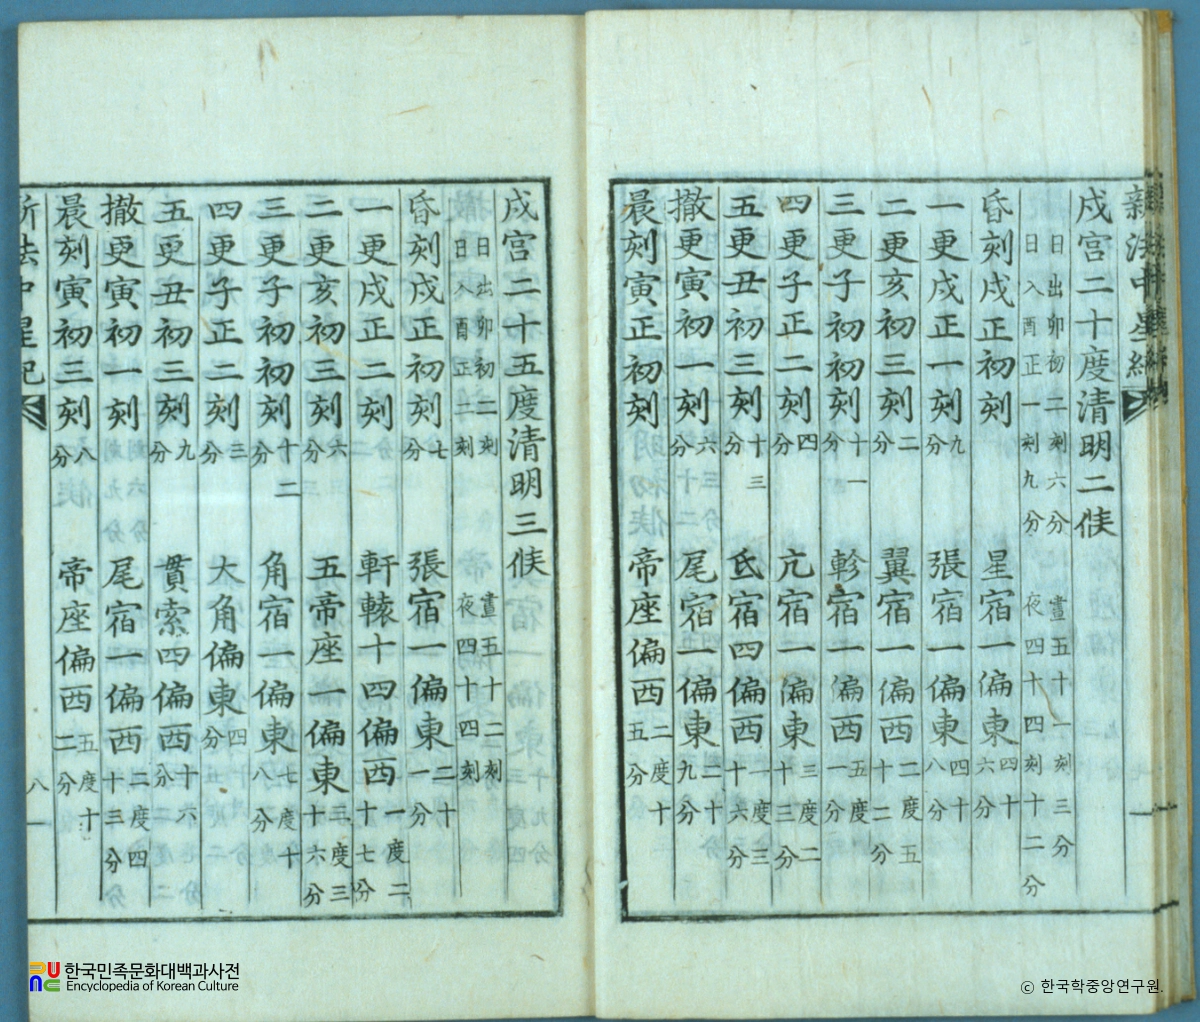 新法中星紀
戌宮二十度清明二候
日出卯初二刻六分 晝五十一刻三分
日入酉正一刻九分 夜四十四刻十二分
昏刻戌正初刻 星宿一偏東四十六分
一更戌正一刻九分 張宿一偏東四十八分
二更亥初三刻二分 翼宿一偏西二度五十二分
三更子初初刻十一分 軫宿一偏西五度一分
四更子正二刻四分 亢宿一偏東三度二十三分
五更丑初三刻十三分 氐宿四偏西一度三十六分
撤更寅初一刻六分 尾宿一偏東二十九分
晨刻寅正初刻 帝座偏西二度十五分
戌宮二十五度清明三候
日出卯初二刻 晝五十二刻
日入酉正二刻 夜四十四刻
昏刻戌正初刻七分 張宿一偏東二十一分
一更戌正二刻 軒轅十四偏西一度二十七分
二更亥初三刻六分 五帝座一偏東三度三十六分
三更子初初刻十二分 角宿一偏東七度十八分
四更子正二刻三分 大角偏東四分
五更丑初三刻九分 貫索四偏西十六分
撤更寅初一刻 尾宿一偏西二度四十三分
晨刻寅初三刻八分 帝座偏西五度十二分
新法中星紀 八
한국민족문화대백과사전
Encyclopedia of Korean Culture
ⓒ 한국학중앙연구원.